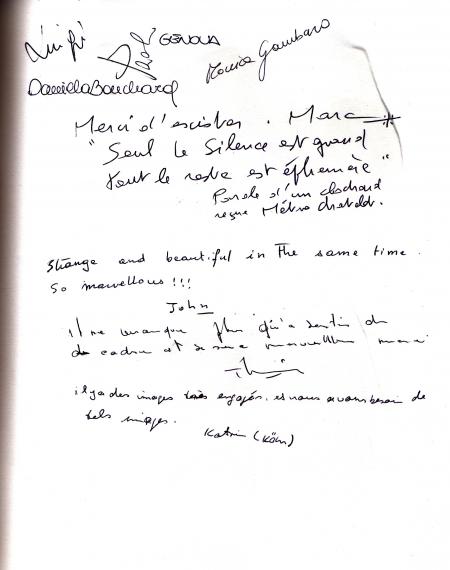 Luigi
GENOVA
Monica Gambaro
Daniella Bouchard
Merci d'exister. Marc
"Seul le Silence est grand
tout le reste est éphémère"
Parole d'un clochard
Métro
Strange and beautiful in the same time.
So marvellous!!!
John
il ne manque plus qu'a sortir du
cadre et
il y a des images très engagés, et nous avons besoin de
tels images.
Katrin (Köln)